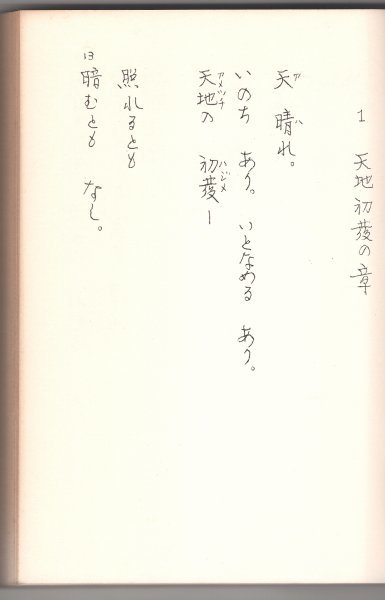 1 天地初發の章
天 晴れ。
いのち あり。 いとなめる あり。
天地の 初發ー
照れるとも
暗むとも なし。
13